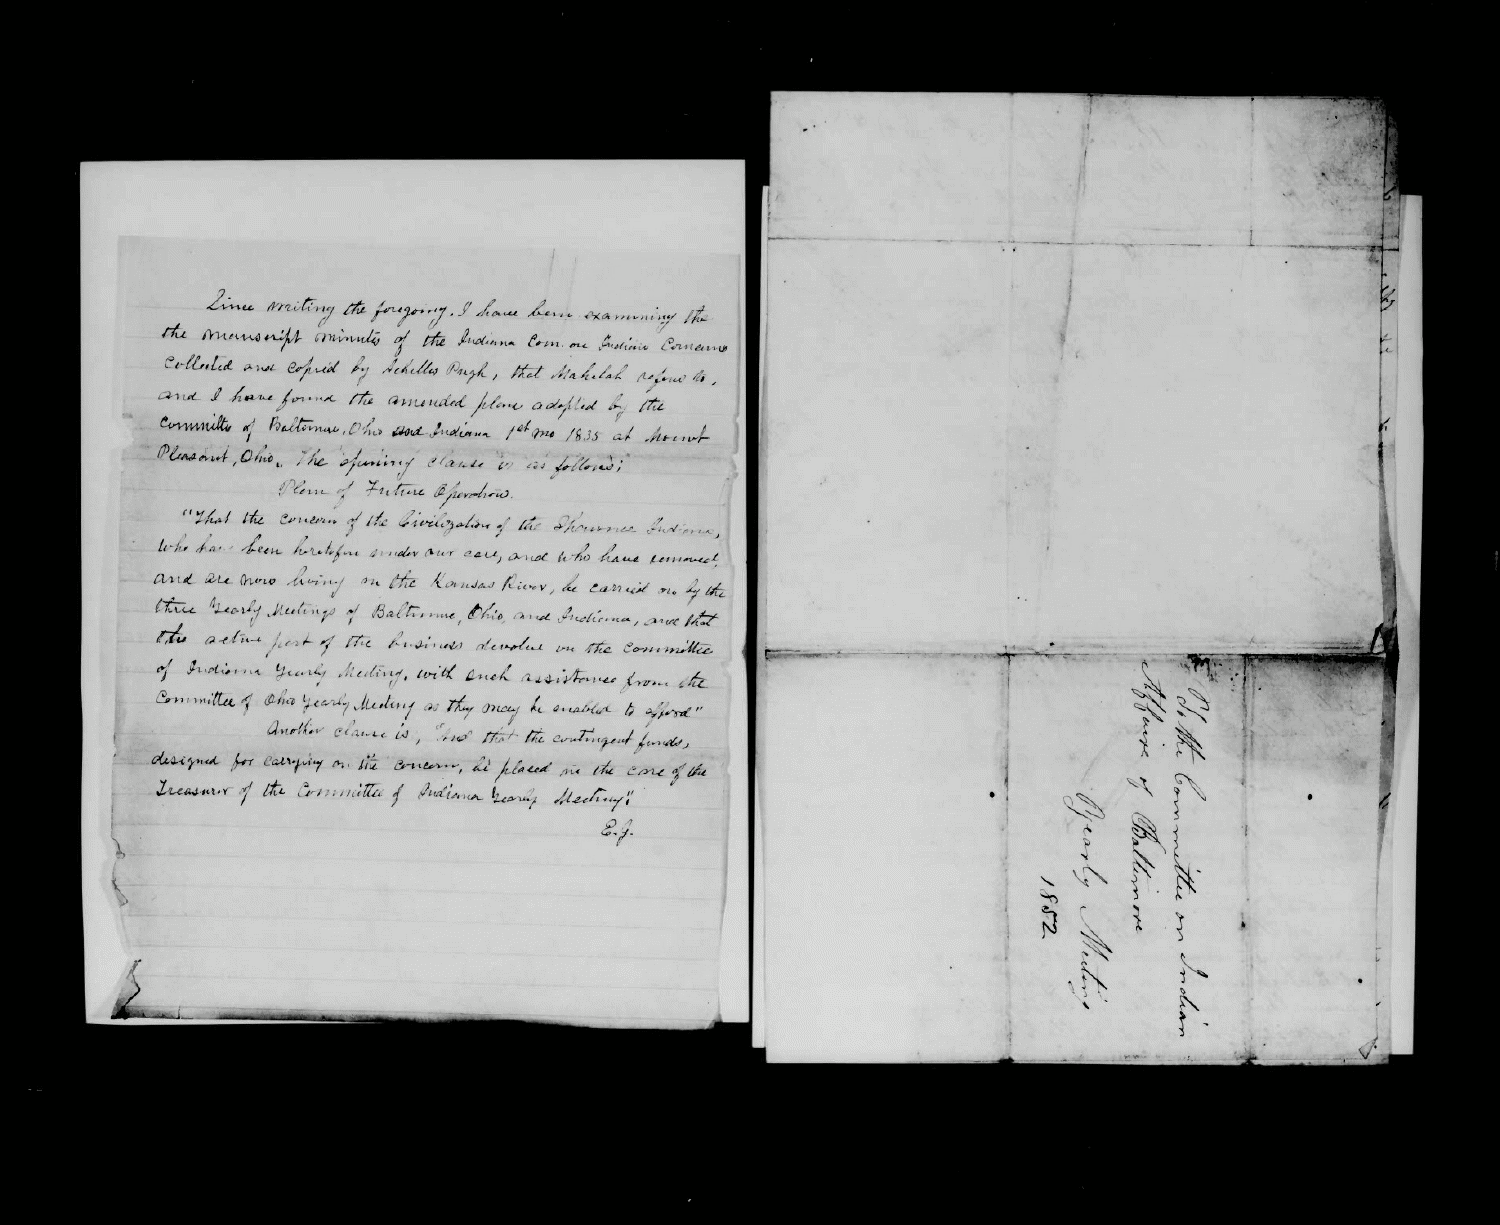 Since writing the foregoing, I have been examining the
the manuscript minutes of the Indiana Com. on Indian Concerns
collected and copied by Achilles Pugh, that Mahalah refers to,
and I have found the amended plan adopted by the
committee of Baltimore, Ohio and Indiana 1st mo 1835 at Mount
Pleasant, Ohio. The opening clause is as follows;
Plan of Future Operations.
"That the concern of the Civilization of the Shawnee Indians,
who have been heretofore under our care, and who have removed,
and are now living on the Kansas River, be carried on by the
three Yearly Meetings of Baltimore, Ohio, and Indiana, and that
the active part of the business devolve on the committee
of Indiana Yearly Meeting, with such assistance from the
Committee of Ohio Yearly Meeting as they may be enabled to afford"
Another clause is, "And that the contingent funds,
designed for carrying on the concern, be placed in the care of the
Treasurer of the Committee of Indiana Yearly Meeting";
E.J.
To the Committee on Indian
Affairs of Baltimore
Yearly Meeting
1852